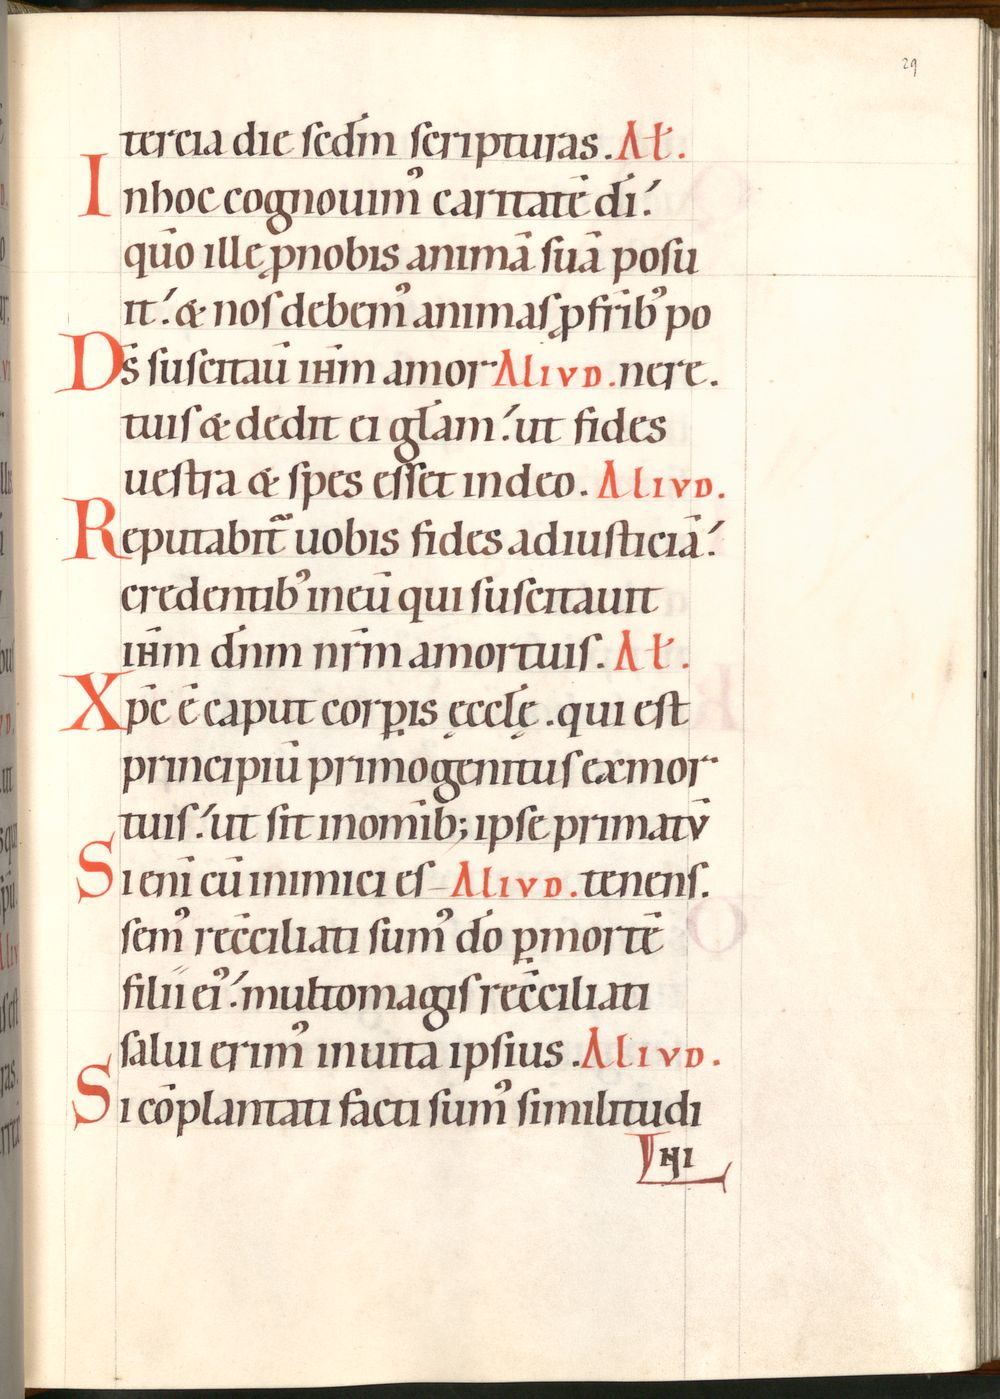 29
tercia die scdm̄ scripturas. Al̄.
In hoc cognouim᾽ caritatē dī.
qūo ille ꝓ nobis animā suā posu
it. & nos debem᾽ animas ꝓ fr̄ib᾽ po
Ds̄ suscitaū ih̄m amor Aliud. nere.
tuis & dedit ei gl̄am. ut fides
uestra & spes esset in deo. Aliud.
Reputabit̃ uobis fides ad iusticiā.
credentib᾽ in eū qui suscitauit
ih̄m dn̄m nr̄m amortuis. Al̄.
Xp̄c ē caput corꝑis ęccl̄ę. qui est
principiū primogenitus ex mor
tuis. ut sit in om̄ib; ipse primatū
Si eni᷄ cū inimici es Aliud. tenens.
sem᾽ rec̄ciliati sum᾽ dō ꝑ mortē
filii ei᾽. multo magis rec̄ciliati
salui erim᾽ in uita ipsius. Aliud.
Si cōplantati facti sum᾽ similitudi
ni